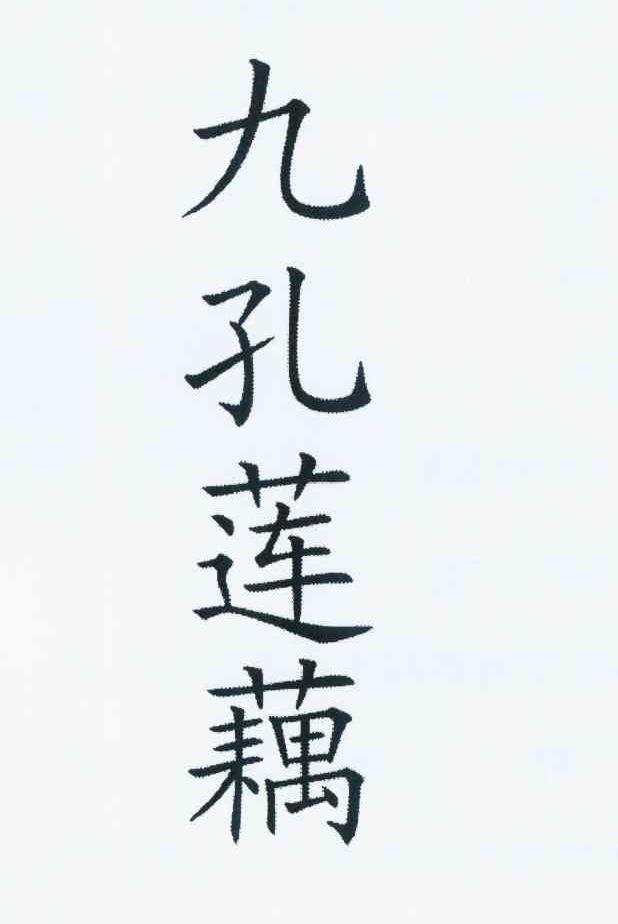 九孔莲藕